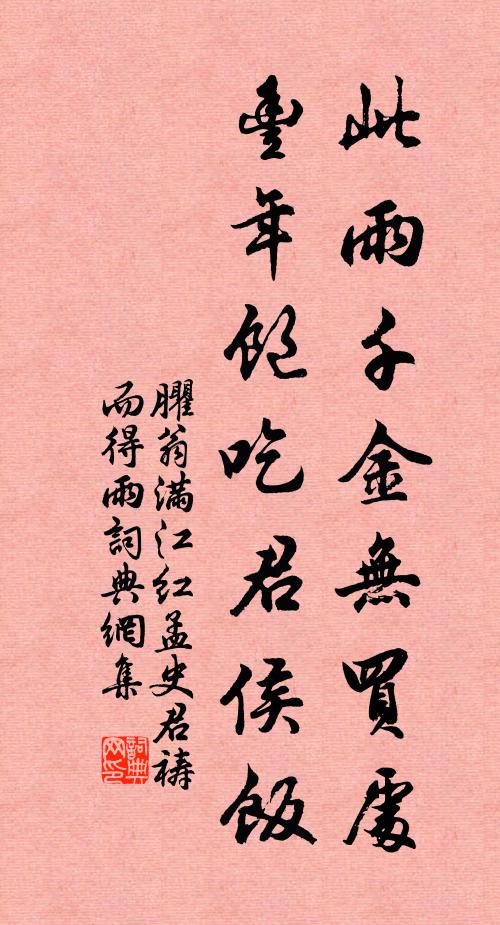 此雨千金無買處
豐年飽吃君侯飯
臞翁滿江紅孟史君禱
而得雨詞典網集
詞典
网印